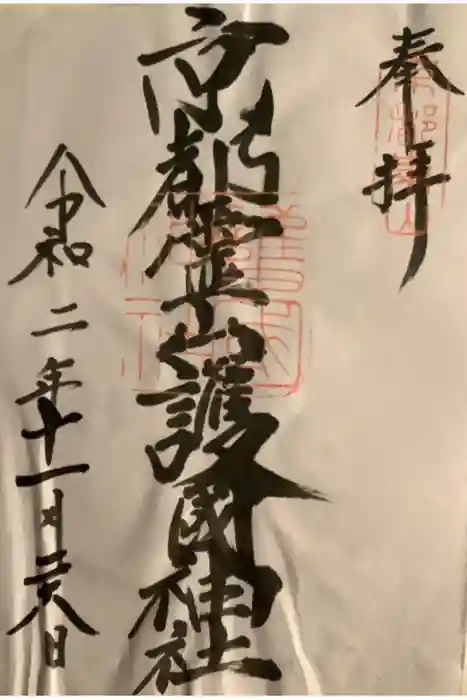 奉拝
京都霊山護國神社
令和二年十一月二十八日